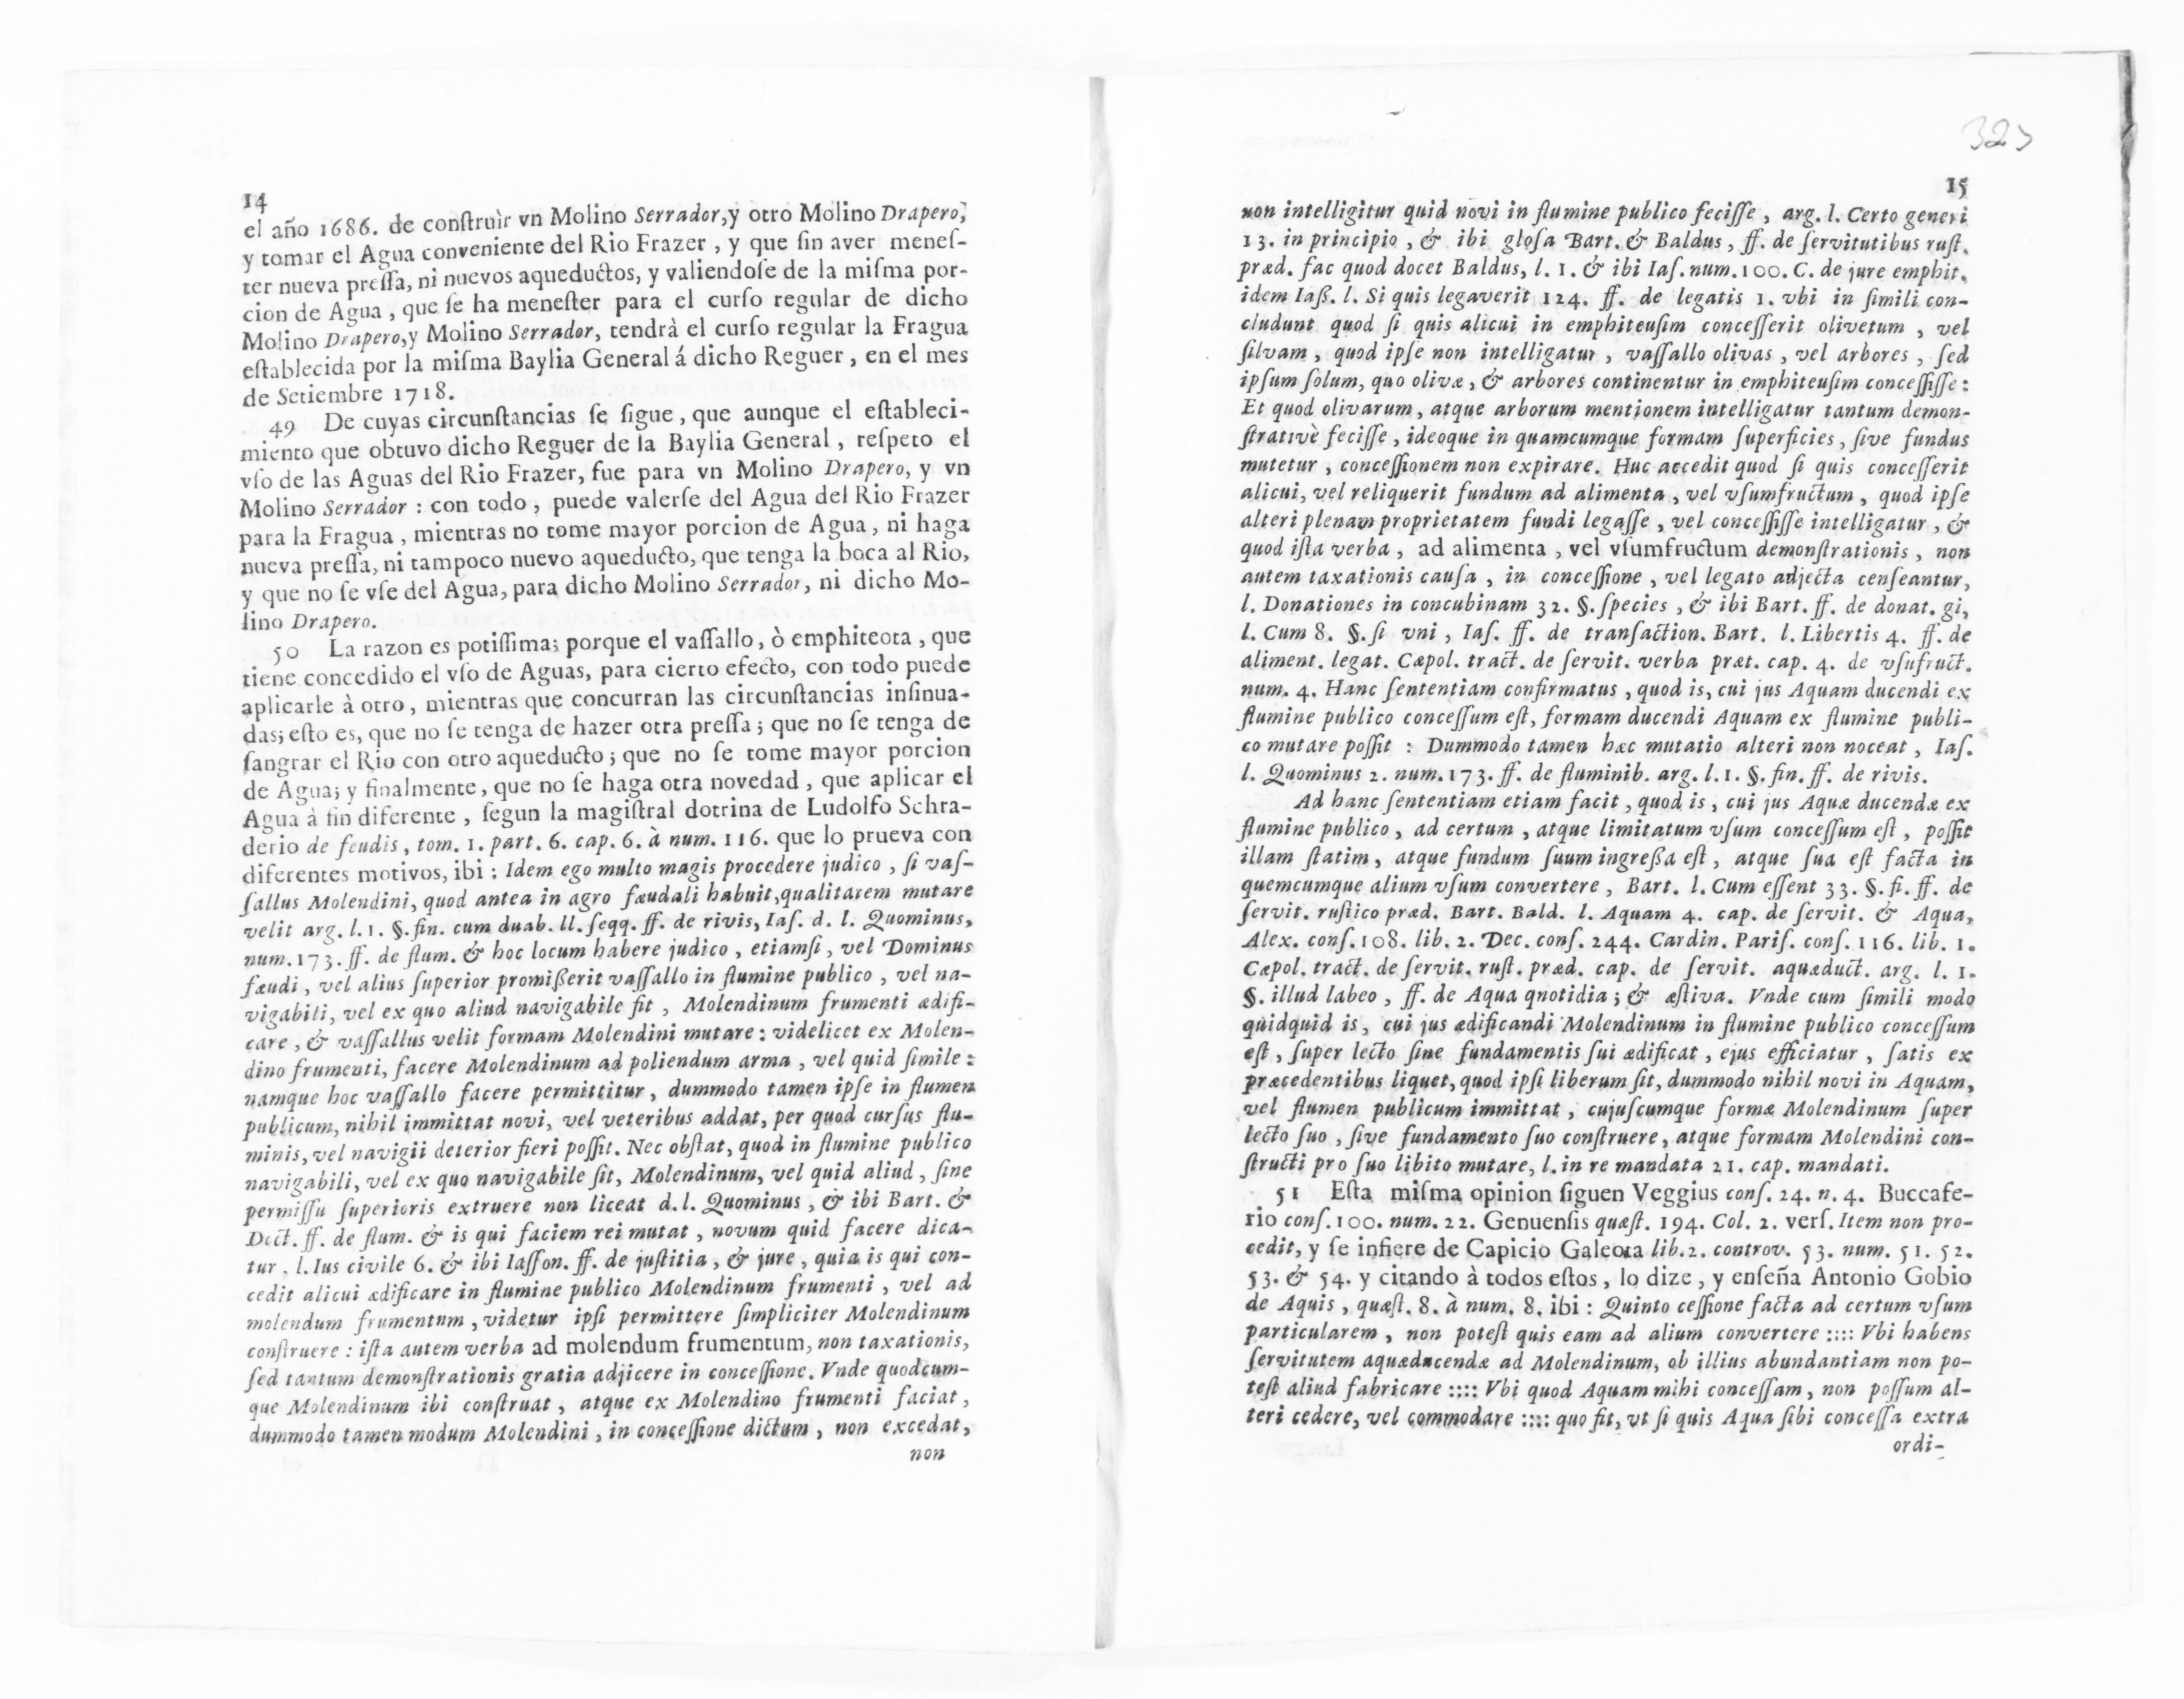 14
el año 1686. de conſtruìr vn Molino Serrador,y otro Molino Drapero,
y tomar el Agua conveniente del Rio Frazer , y que ſin aver meneſ-
ter nueva preſſa, ni nuevos aqueductos, y valiendoſe de la miſma por-
cion de Agua , que ſe ha meneſter para el curſo regular de dicho
Molino Drapero,y Molino Serrador, tendrà el curſo regular la Fragua
eſtablecida por la miſma Baylia General á dicho Reguer , en el mes
de Setiembre 1718.
49 De cuyas circunſtancias ſe ſigue , que aunque el eſtableci-
miento que obtuvo dicho Reguer de la Baylia General , reſpeto el
vſo de las Aguas del Rio Frazer, fue para vn Molino Drapero, y vn
Molino Serrador : con todo , puede valerſe del Agua del Rio Frazer
para la Fragua , mientras no tome mayor porcion de Agua , ni haga
nueva preſſa, ni tampoco nuevo aqueducto, que tenga la boca al Rio,
y que no ſe vſe del Agua, para dicho Molino Serrador, ni dicho Mo-
lino Drapero.
50 La razon es potiſſima; porque el vaſſallo, ò emphiteota , que
tiene concedido el vſo de Aguas, para cierto efecto, con todo puede
aplicarle à otro , mientras que concurran las circunſtancias inſinua-
das; eſto es, que no ſe tenga de hazer otra preſſa ; que no ſe tenga de
ſangrar el Rio con otro aqueducto ; que no ſe tome mayor porcion
de Agua; y finalmente, que no ſe haga otra novedad , que aplicar el
Agua à fin diferente , ſegun la magiſtral dotrina de Ludolfo Schra-
derio de feudis , tom. 1. part. 6. cap. 6. à num. 116. que lo prueva con
diferentes motivos, ibi : Idem ego multo magis procedere judico , ſi vaſ-
ſallus Molendini, quod antea in agro fœudali habuit,qualitatem mutare
velit arg. l. 1. §. fin. cum duab. ll. ſeqq. ff. de rivis, Iaſ. d. l. Quominus,
num.173. ff. de flum. & hoc locum habere judico , etiamſi , vel Dominus
fœudi , vel alius ſuperior promißerit vaſſallo in flumine publico , vel na-
vigabili, vel ex quo aliud navigabile fit , Molendinum frumenti ædifi-
care , & vaſſallus velit formam Molendini mutare : videlicet ex Molen-
dino frumenti, facere Molendinum ad poliendum arma , vel quid ſimile :
namque hoc vaſſallo facere permittitur , dummodo tamen ipſe in flumen
publicum, nihil immittat novi, vel veteribus addat, per quod curſus flu-
minis, vel navigii deterior fieri poſſit. Nec obſtat, quod in flumine publico
navigabili, vel ex quo navigabile ſit, Molendinum, vel quid aliud , ſine
permiſſu ſuperioris extruere non liceat d. l. Quominus , & ibi Bart. &
Dict. ff. de flum. & is qui faciem rei mutat , novum quid facere dica-
tur . l. Ius civile 6. & ibi Iaſſon. ff. de juſtitia , & jure , quia is qui con-
cedit alicui ædificare in flumine publico Molendinum frumenti , vel ad
molendum frumentum , videtur ipſi permittere ſimpliciter Molendinum
conſtruere : iſta autem verba ad molendum frumentum, non taxationis,
ſed tantum demonſtrationis gratia adjicere in conceſſione. Vnde quodcum-
que Molendinum ibi conſtruat , atque ex Molendino frumenti faciat ,
dummodo tamen modum Molendini , in conceſſione dictum , non excedat,
non
323
15
non intelligitur quid novi in flumine publico feciſſe , arg. l. Certo generi
13. in principio , & ibi gloſa Bart. & Baldus , ff. de ſervitutibus ruſt.
præd. fac quod docet Baldus, l. 1. & ibi Iaſ. num. 100. C. de jure emphit.
idem Iaß. l. Si quis legaverit 124. ff. de legatis 1. vbi in ſimili con-
cludunt quod ſi quis alicui in emphiteuſim conceſſerit olivetum , vel
ſilvam , quod ipſe non intelligatur , vaſſallo olivas , vel arbores , ſed
ipſum ſolum, quo olivæ , & arbores continentur in emphiteuſim conceſſiſſe :
Et quod olivarum, atque arborum mentionem intelligatur tantum demon-
ſtrativè feciſſe , ideoque in quamcumque formam ſuperficies , ſive fundus
mutetur , conceſſionem non expirare. Huc accedit quod ſi quis conceſſerit
alicui, vel reliquerit fundum ad alimenta , vel vſumfructum , quod ipſe
alteri plenam proprietatem fundi legaſſe , vel conceſſiſſe intelligatur , &
quod iſta verba , ad alimenta , vel vſumfructum demonſtrationis , non
autem taxationis cauſa , in conceſſione , vel legato adjecta cenſeantur,
l. Donationes in concubinam 32. §. ſpecies , & ibi Bart. ff. de donat. gi,
l. Cum 8. §. ſi vni , Iaſ. ff. de tranſaction. Bart. l. Libertis 4. ff. de
aliment. legat. Cæpol. tract. de ſervit. verba præt. cap. 4. de vſufruct.
num. 4. Hanc ſententiam confirmatus , quod is, cui jus Aquam ducendi ex
flumine publico conceſſum eſt, formam ducendi Aquam ex flumine publi-
co mutare poſſit : Dummodo tamen hæc mutatio alteri non noceat , Iaſ.
l. Quominus 2. num. 173. ff. de fluminib. arg. l. 1. §. fin. ff. de rivis.
Ad hanc ſententiam etiam facit , quod is , cui jus Aquæ ducendæ ex
flumine publico , ad certum , atque limitatum vſum conceſſum eſt , poſſit
illam ſtatim , atque fundum ſuum ingreßa eſt , atque ſua eſt facta in
quemcumque alium vſum convertere , Bart. l. Cum eſſent 33. §. fi. ff. de
ſervit. ruſtico præd. Bart. Bald. l. Aquam 4. cap. de ſervit. & Aqua,
Alex. conſ. 108. lib. 2. Dec. conſ. 244. Cardin. Pariſ. conſ. 116. lib. 1.
Cæpol. tract. de ſervit. ruſt. præd. cap. de ſervit. aquæduct. arg. l. 1.
§. illud labeo , ff. de Aqua qnotidia ; & æſtiva. Vnde cum ſimili modo
quidquid is, cui jus ædificandi Molendinum in flumine publico conceſſum
eſt , ſuper lecto ſine fundamentis ſui ædificat , ejus efficiatur , ſatis ex
præcedentibus liquet, quod ipſi liberum ſit, dummodo nihil novi in Aquam,
vel flumen publicum immittat , cujuſcumque formæ Molendinum ſuper
lecto ſuo , ſive fundamento ſuo conſtruere , atque formam Molendini con-
ſtructi pro ſuo libito mutare, l. in re mandata 21. cap. mandati.
51 Eſta miſma opinion ſiguen Veggius conſ. 24. n. 4. Buccafe-
rio conſ. 100. num. 22. Genuenſis quæſt. 194. Col. 2. verſ. Item non pro-
cedit, y ſe infiere de Capicio Galeota lib. 2. controv. 53. num. 51. 52.
53. & 54. y citando à todos eſtos , lo dize , y enſeña Antonio Gobio
de Aquis , quæſt. 8. à num. 8. ibi : Quinto ceſſione facta ad certum vſum
particularem , non poteſt quis eam ad alium convertere :::: Vbi habens
ſervitutem aquæducendæ ad Molendinum, ob illius abundantiam non po-
teſt aliud fabricare :::: Vbi quod Aquam mihi conceſſam , non poſſum al-
teri cedere, vel commodare :::: quo fit, vt ſi quis Aqua ſibi conceſſa extra
ordi-